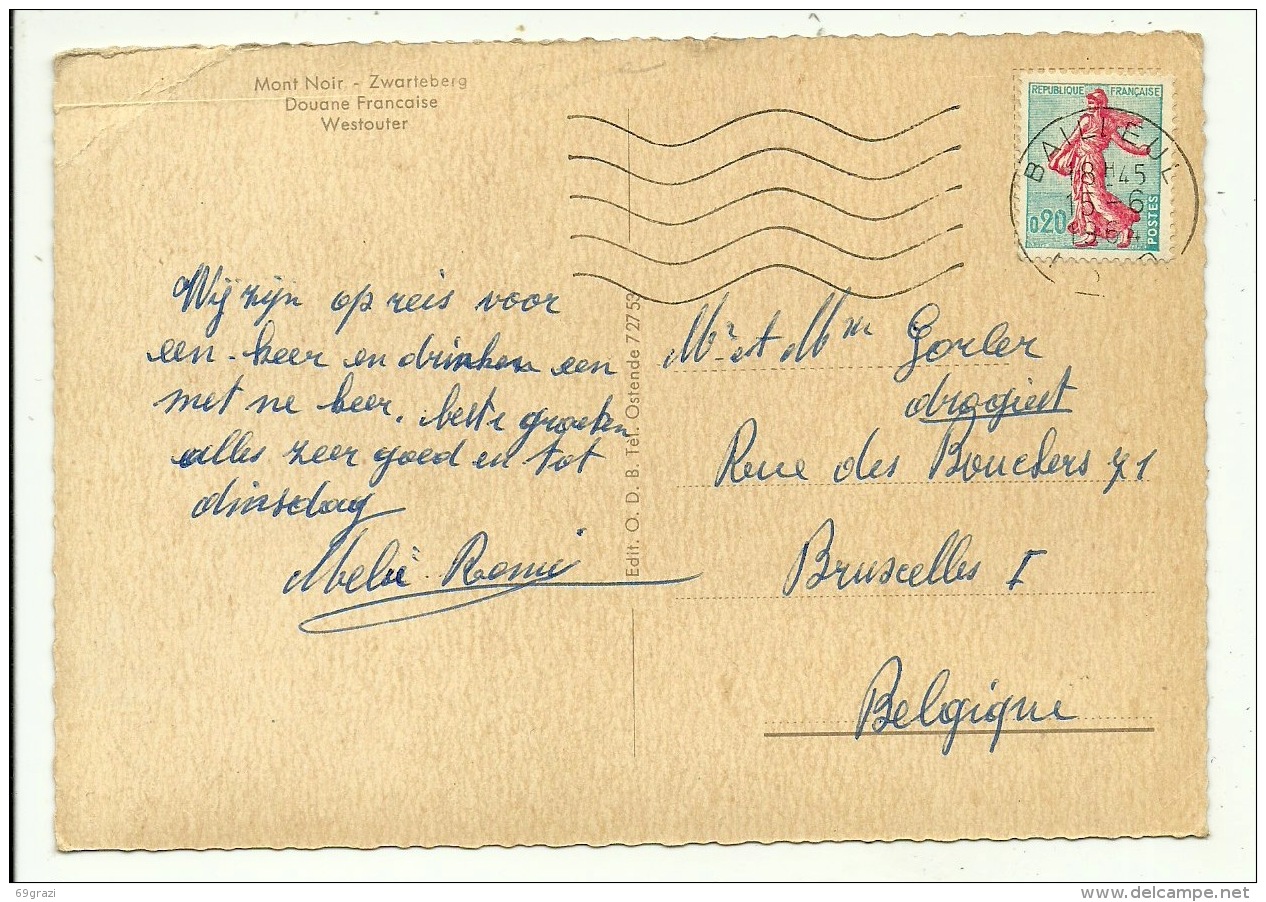 Mont Noir - Zwarteberg
Douane Francaise
Westouter
REPUBLIQUE FRANÇAISE
0,20
POSTES
BAILLEUL
18H45
15-6
1964
Wij zijn op reis voor
een keer en drinken een
met ne keer, beste groeten
alles zeer goed en tot
dinsdag
Melie Remi
Edit. O. D. B. Tel. Ostende 727 53
Mr et Mme Gorler
drogist
Rue des Bouchers 71
Bruxelles I
Belgique
69grazi
delcampe.net